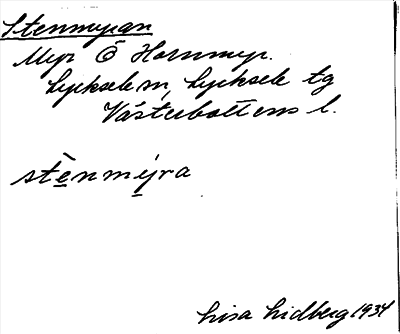 Stenmyran
Myr Ö Hornmyr.
Lycksele sn, Lycksele tg
Västerbottens l.
stènmýra
Lisa Lidberg 1934